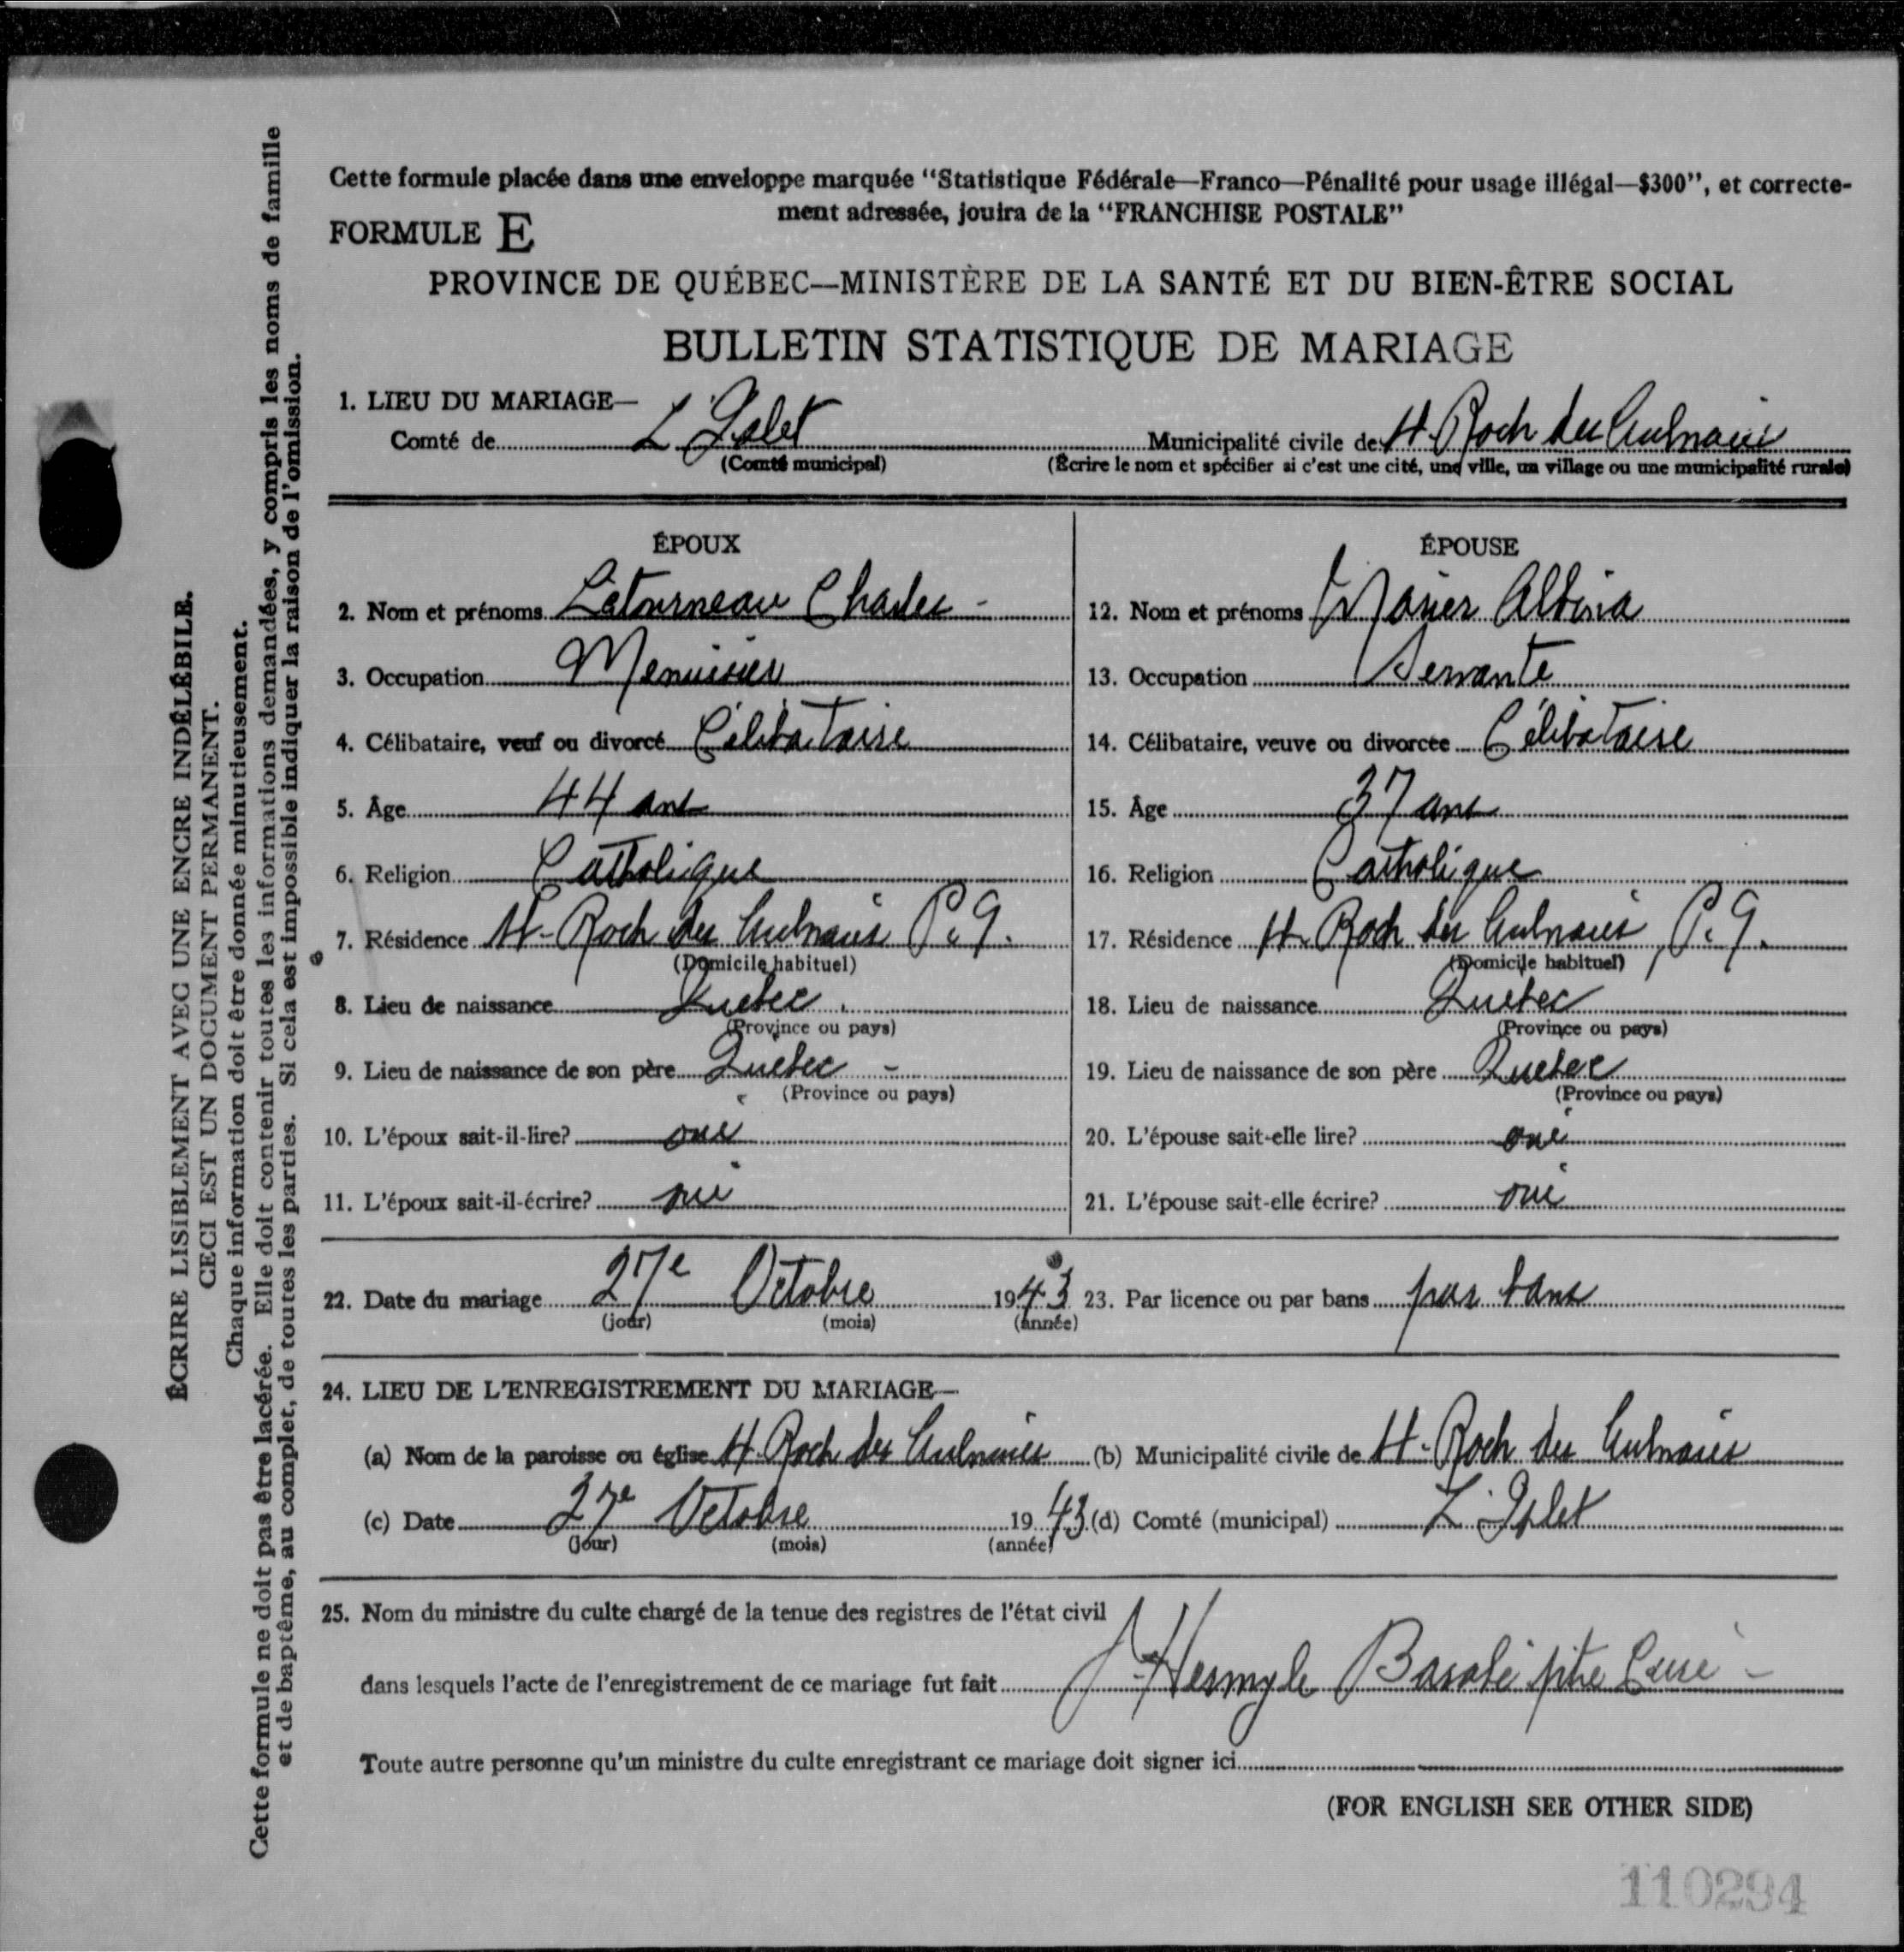 Cette formule placée dans une enveloppe marquée "Statistique Fédérale—Franco—Pénalité pour usage illégal—$300", et correcte-
ment adressée, jouira de la "FRANCHISE POSTALE"
FORMULE E
PROVINCE DE QUÉBEC—MINISTÈRE DE LA SANTÉ ET DU BIEN-ÊTRE SOCIAL
BULLETIN STATISTIQUE DE MARIAGE
1. LIEU DU MARIAGE—
Comté de L'Islet Municipalité civile de St-Roch des Aulnaies
(Comté municipal) (Écrire le nom et spécifier si c'est une cité, une ville, un village ou une municipalité rurale)
ÉPOUX
2. Nom et prénoms Létourneau Charles -
3. Occupation Menuisier
4. Célibataire, veuf ou divorcé Célibataire
5. Âge 44 ans
6. Religion Catholique
7. Résidence St-Roch des Aulnaies P.Q.
(Domicile habituel)
8. Lieu de naissance Québec
(Province ou pays)
9. Lieu de naissance de son père Québec -
(Province ou pays)
10. L'époux sait-il-lire? oui
11. L'époux sait-il-écrire? oui
ÉPOUSE
12. Nom et prénoms Albina
13. Occupation Servante
14. Célibataire, veuve ou divorcée Célibataire
15. Âge 37 ans
16. Religion Catholique
17. Résidence St-Roch des Aulnaies, P.Q.
(Domicile habituel)
18. Lieu de naissance Québec
(Province ou pays)
19. Lieu de naissance de son père Québec
(Province ou pays)
20. L'épouse sait-elle lire? oui
21. L'épouse sait-elle écrire? oui
22. Date du mariage 27e Octobre 1943 23. Par licence ou par bans par bans
(jour) (mois) (année)
24. LIEU DE L'ENREGISTREMENT DU MARIAGE—
(a) Nom de la paroisse ou église St-Roch des Aulnaies (b) Municipalité civile de St-Roch des Aulnaies
(c) Date 27e Octobre 1943 (d) Comté (municipal) L'Islet
(jour) (mois) (année)
25. Nom du ministre du culte chargé de la tenue des registres de l'état civil
dans lesquels l'acte de l'enregistrement de ce mariage fut fait ptre Curé -
Toute autre personne qu'un ministre du culte enregistrant ce mariage doit signer ici
(FOR ENGLISH SEE OTHER SIDE)
110294
ÉCRIRE LISIBLEMENT AVEC UNE ENCRE INDÉLÉBILE.
CECI EST UN DOCUMENT PERMANENT.
Chaque information doit être donnée minutieusement.
Cette formule ne doit pas être lacérée. Elle doit contenir toutes les informations demandées, y compris les noms de famille
et de baptême, au complet, de toutes les parties. Si cela est impossible indiquer la raison de l'omission.